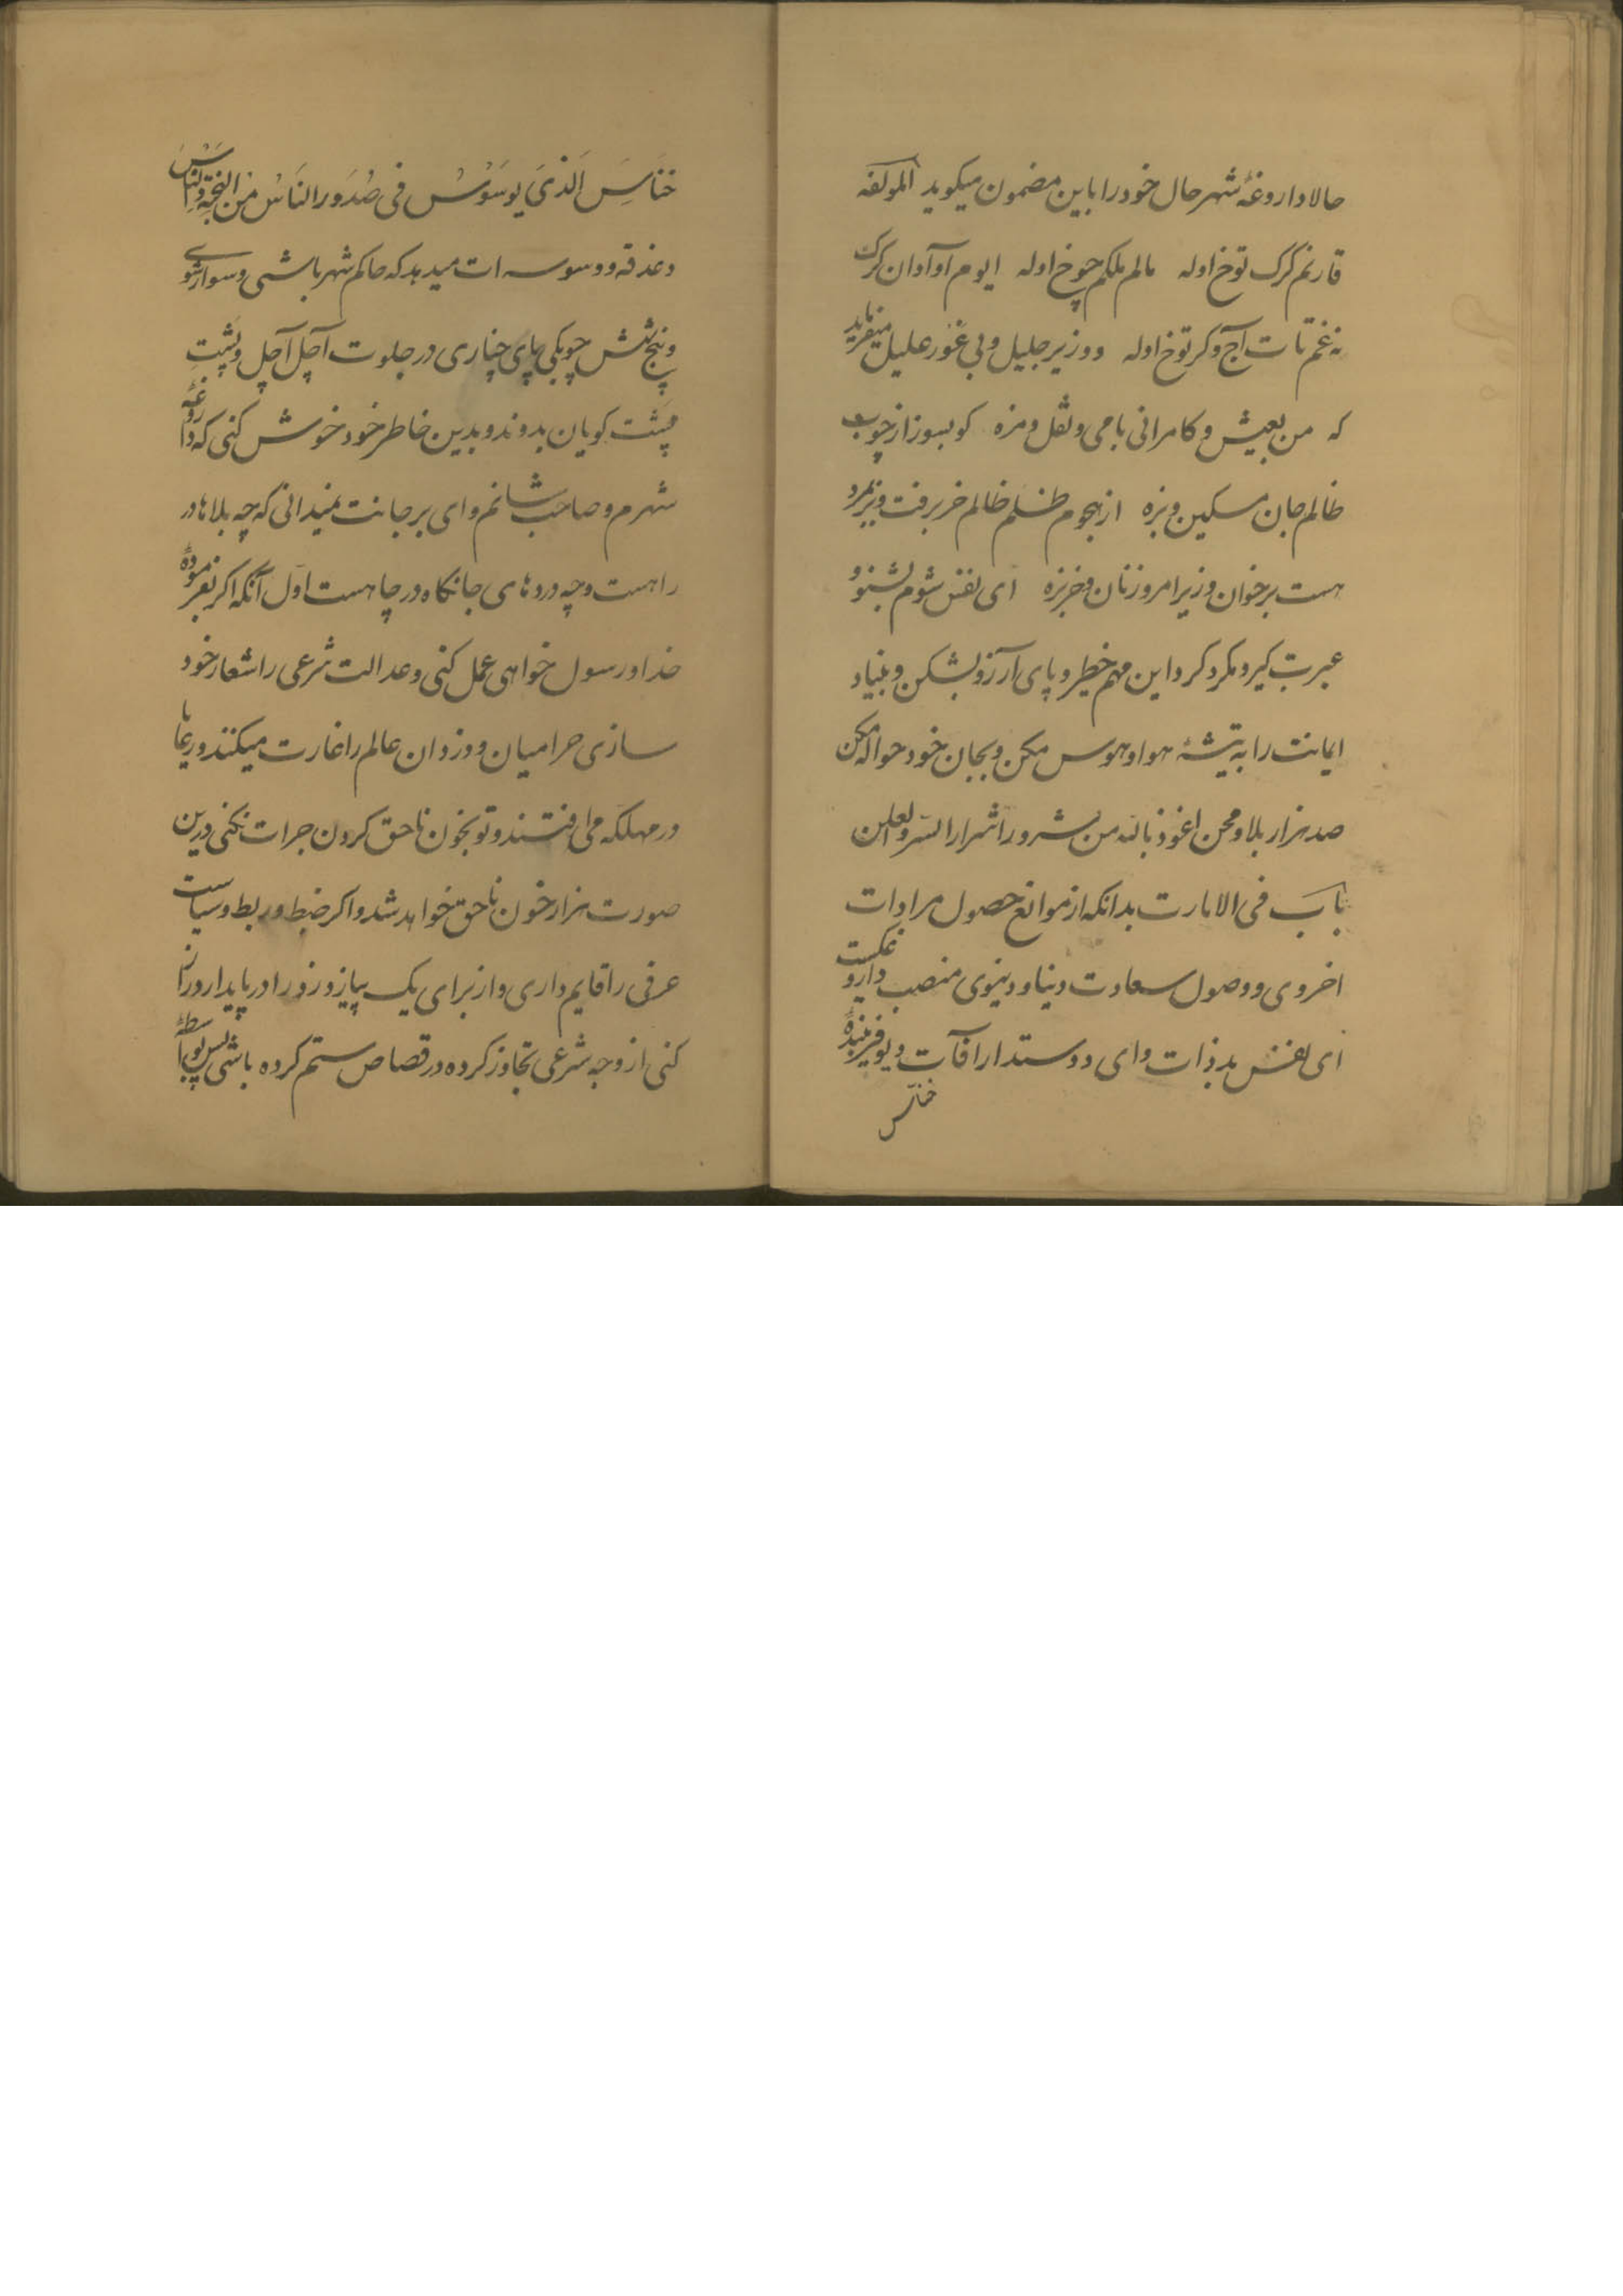 حالا داروغهٔ شهر حال خود را باین مضمون میکوید المولفه
قارنم کرک توخ اوله مالم ملکم چوخ اوله ایوم آوادان کرک
نه غم تات آج و کر توخ اوله و وزیر جلیل و بی غور علیل میفرماید
که من بعیش و کامرانی بامی و نقل و مزه کو بسوزاز چوب
ظالم جان مسکین و بزه از هجوم ظلم ظالم خربرفت و بزبمرد
هست بر خوان وزیر امروز نان و خربزه ای نفس شوم بشنو و
عبرت کیر و مکرد کرد این مهم خطیر و پای آرزو بشکن و بنیاد
ایمانت را به تیشهٔ هوا و هوس مکن و بجان خود حواله مکن
صد هزار بلا و محن اعوذ بالله من شرور اشرار السر و العلن
باب فی الامارت بدانکه از موانع حصول مرادات
اخروی و وصول سعادت دنیا و دینوی منصب داروغکیست
ای نفس بد ذات و ای دوستدار آفات دیو فریبندهٔ
خناس
خناس الذی یوسوس فی صدور الناس من الجنة والناس
دغدقه و وسوسه ات میدهد که حاکم شهر باشی و سوار شوی
و پنج شش چوبکی پای چناری در جلوت آچل آچل و پشت
پشت کویان بدوند و بدین خاطر خود خوش کنی که داروغهٔ
شهرم و صاحب شانم وای بر جانت نمیدانی که چه بلاها در
راهست و چه دردهای جانکاه در چاهست اول آنکه اکر بفرمودهٔ
خدا و رسول خواهی عمل کنی و عدالت شرعی را شعار خود
سازی حرامیان و دزدان عالم را غارت میکنند و رعایا
در مهلکه می افتند و تو بخون ناحق کردن جرات نکنی درین
صورت هزار خون ناحق خواهد شد و اکر ضبط و ربط و سیاست
عرفی را قایم داری و از برای یک پیاز دزد را در پایدار دراز
کنی از وجه شرعی تجاوز کرده در قصاص ستم کرده باشی پس بواسطهٔ